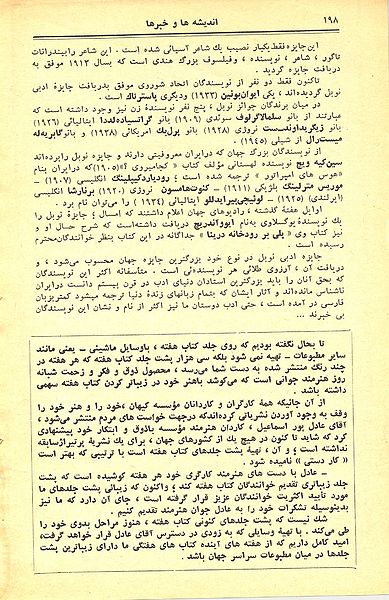 ۱۹۸
اندیشه ها و خبرها
این‌جایزه فقط یکبار نصیب یك شاعر آسیائی شده است . این شاعر رابیندرانات
تاگور ، شاعر ، نویسنده ، وفیلسوف بزرگ هندی است که بسال ۱۹۱۳ موفق به
دریافت جایزه گردید .
تاکنون فقط دو نفر از نویسندگان اتحاد شوروی موفق بدریافت جایزهٔ ادبی
نوبل گردیده‌اند ، یکی ایوان‌بونین (۱۹۳۳) ودیگری پاسترناك است .
در میان برندگان جوائز نوبل ، پنج نفر نویسندهٔ زن نیز وجود داشته است که
عبارتند از بانو سلمالاگرلوف سوئدی (۱۹۰۹) بانو گراتسیادلددا ایتالیائی (۱۹۲۶)
بانو زیگریداوندست نروژی (۱۹۲۸) بانو پرل‌بك امریکائی (۱۹۳۸) و بانوگابریه‌له
میسترال از شیلی (۱۹۴۵) .
از نویسندگان بزرگ جهان که درایران معروفیتی دارند و جایزه نوبل رابرده‌اند
سین‌کیه ویچ نویسنده لهستانی مؤلف کتاب « کجامیروی ؟»(۱۹۰۵)که درایران بنام
«هوس های امپراتور » ترجمه شده است ؛ رودیاردکیپلینگ انگلیسی (۱۹۰۷) –
موریس مترلینگ بلژیکی (۱۹۱۱) – کنوت‌هامسون نروژی (۱۹۲۰) برناردشا انگلیسی
(ایرلندی) (۱۹۲۵) – لوئیجی‌پیراندللو ایتالیائی (۱۹۳۴ ) را می‌توان نام برد .
اوایل هفتهٔ گذشته ، رادیوهای جهان اعلام داشتند که امسال ؛ جایزهٔ نوبل را
یك نویسندهٔ یوگسلاوی به‌نام ایووآندریچ دریافت داشته‌است که شرح حال او و
نیز کتاب وی « پلی بر رودخانه درینا » جداگانه در این کتاب بنظر خوانندگان‌محترم
رسیده است .
جایزه ادبی نوبل در نوع خود بزرگترین جایزه جهان محسوب می‌شود ، و
دریافت آن ، آرزوی طلائی هر نویسنده‌ئی است . متأسفانه اکثر این نویسندگان
که بحق آنان را باید بزرگترین استادان دنیای ادب در قرن بیستم دانست درایران
ناشناس مانده‌اند و آثار ایشان که بتمام زبانهای زندهٔ دنیا ترجمه میشود کمتربزبان
فارسی در آمده است ، حتی ادب دوستان ما نیز اکثر از نام و نشان این نویسندگان
بی خبرند ...
تا بحال نگفته بودیم که روی جلد کتاب هفته ، باوسایل ماشینی – یعنی مانند
سایر مطبوعات – تهیه نمی شود بلکه سی هزار پشت جلد کتاب هفته که هر هفته در
چند رنگ منتشر شده به دست شما می‌رسد ، محصول ذوق و فکر و زحمت شبانه
روز هنرمند جوانی است که می‌کوشد باهنر خود در زیباتر کردن کتاب هفته سهمی
داشته باشد .
از آن جائیکه همهٔ کارگران و کاردانان مؤسسه کیهان ،خود را و هنر خود را
وقف به وجود آوردن نشریاتی کرده‌اندکه درجهت خواست های مردم منتشر می‌شود ،
آقای عادل پور اسماعیل ، کاردان هنرمند مؤسسه باذوق و ابتکار خود پیشنهادی
کرد که شاید تا کنون در هیچ یك از کشورهای جهان ، برای یك نشریهٔ پرتیراژسابقه
نداشته است ؛ و آن ، تهیهٔ پشت جلدهای کتاب هفته است با ترتیبی که بهتر است
« کار دستی » نامیده شود .
– عادل با دست های هنرمند کارگری خود هر هفته کوشیده است که پشت
جلد زیباتری تقدیم خوانندگان کتاب هفته کند ؛ واکنون که زیبائی پشت جلدهای ما
مورد تأیید اکثریت خوانندگان عزیز قرار گرفته است ، جای آن دارد که ما نیز
بدینوسیله تشکرات خود را به عادل جوان هنرمند تقدیم کنیم .
شك نیست که پشت جلدهای کنونی کتاب هفته ، هنوز مراحل بدوی خود را
طی می‌کند . با تهیهٔ وسایلی که به زودی در دسترس آقای عادل قرار خواهد گرفت،
امید کامل داریم که از هفته های آینده کتاب های هفتگی ما دارای زیباترین پشت
جلدها در میان مطبوعات سراسر جهان باشد .